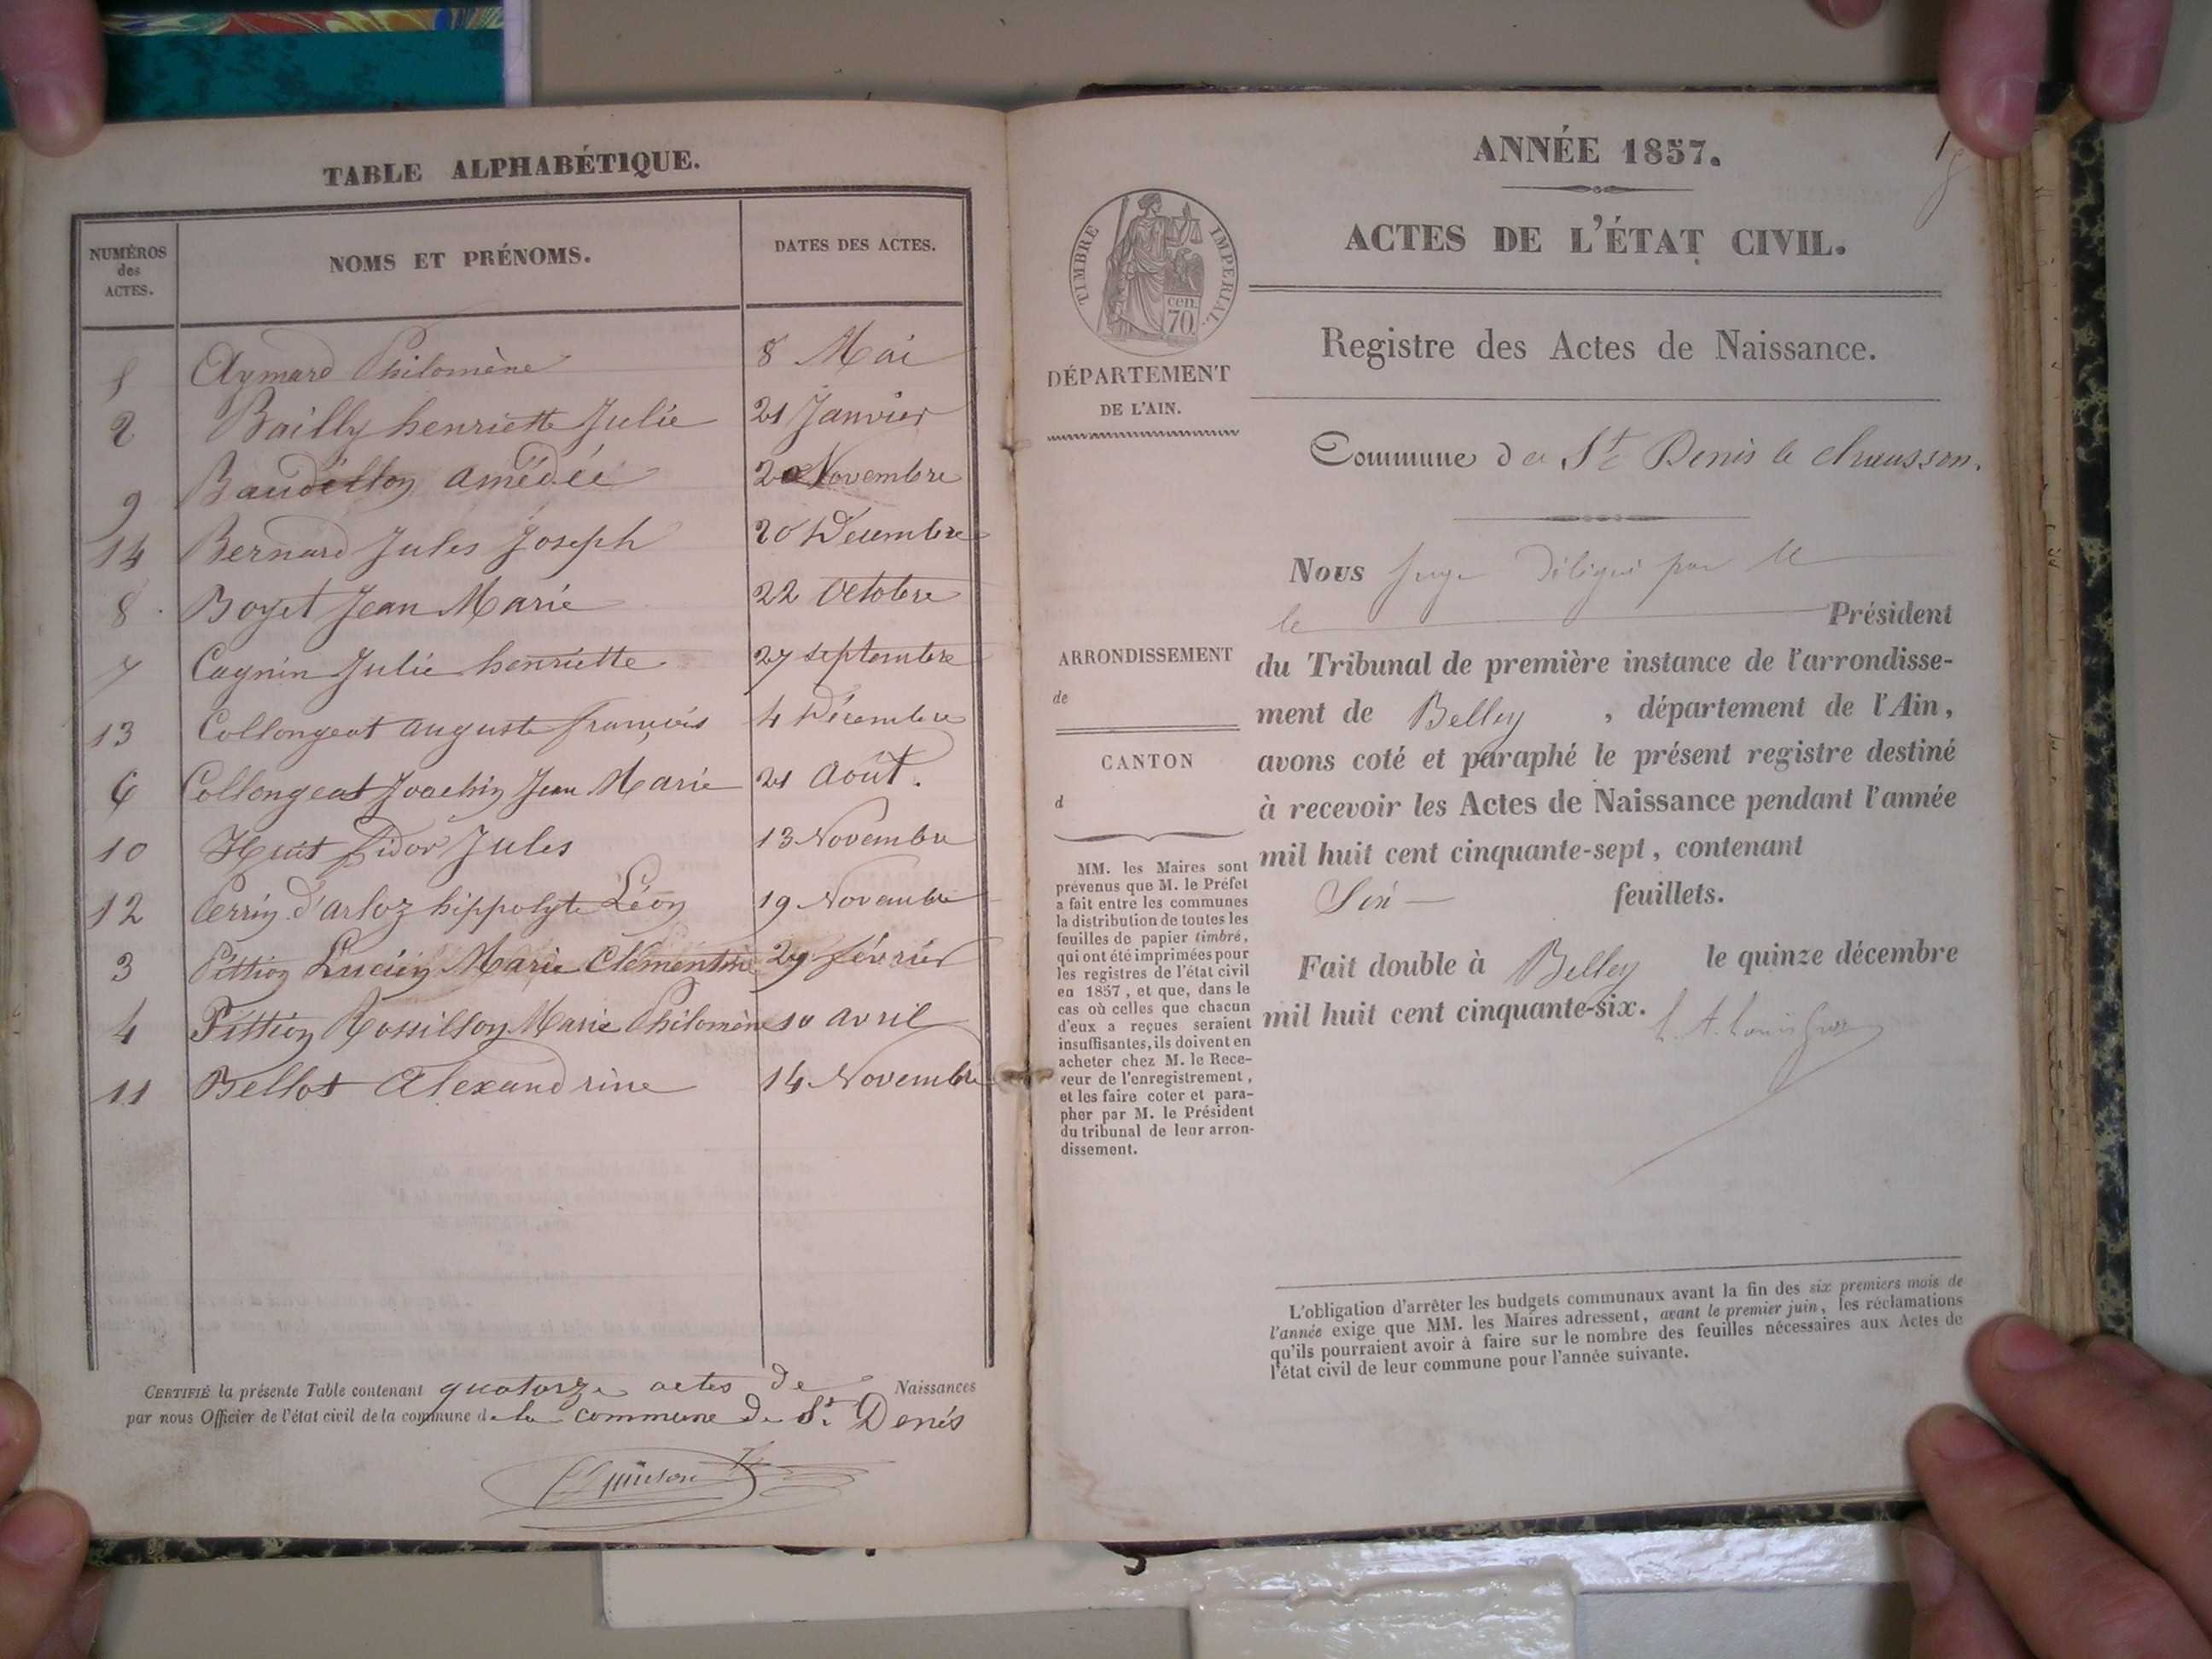 TABLE ALPHABÉTIQUE.
NUMÉROS des ACTES.
NOMS ET PRÉNOMS.
DATES DES ACTES.
5 Aymard Philomène 8 Mai
2 Bailly henriette Julie 21 Janvier
9 Amédée Novembre
14 Bernard Jules Joseph 20 Décembre
8 Boyet Jean Marie 22 Octobre
7 Cagnin Julie henriette 27 septembre
13 Collongeat auguste françois 4 Décembre
6 Collongeat Joachin Jean Marie 21 Août.
10 Huit Jules 13 Novembre
12 Perrin d'arloz hippolyte Léon 19 Novembre
3 Pittion Lucien Marie Clémentine février
4 Pittion Rossillon Marie Philomène 10 avril
11 Bellot Alexandrine 14 Novembre
CERTIFIÉ la présente Table contenant quatorze actes de Naissances
par nous Officier de l'état civil de la commune de la commune de St Denis
1
ANNÉE 1857.
ACTES DE L'ÉTAT CIVIL.
TIMBRE IMPERIAL.
cen.
70
DÉPARTEMENT
DE L'AIN.
Registre des Actes de Naissance.
Commune de St Denis le chausson.
Nous Juge Délégué par
le Président
ARRONDISSEMENT
de
CANTON
d
du Tribunal de première instance de l'arrondisse-
ment de Belley , département de l'Ain,
avons coté et paraphé le présent registre destiné
à recevoir les Actes de Naissance pendant l'année
mil huit cent cinquante-sept, contenant
feuillets.
Fait double à Belley le quinze décembre
mil huit cent cinquante-six.
MM. les Maires sont
prévenus que M. le Préfet
a fait entre les communes
la distribution de toutes les
feuilles de papier timbré,
qui ont été imprimées pour
les registres de l'état civil
en 1857, et que, dans le
cas où celles que chacun
d'eux a reçues seraient
insuffisantes, ils doivent en
acheter chez M. le Rece-
veur de l'enregistrement,
et les faire coter et para-
pher par M. le Président
du tribunal de leur arron-
dissement.
L'obligation d'arrêter les budgets communaux avant la fin des six premiers mois de
l'année exige que MM. les Maires adressent, avant le premier juin, les réclamations
qu'ils pourraient avoir à faire sur le nombre des feuilles nécessaires aux Actes de
l'état civil de leur commune pour l'année suivante.